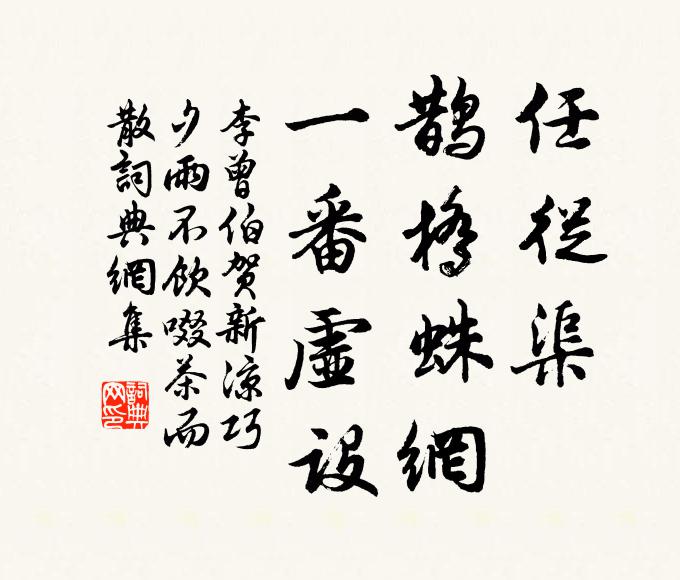 任從渠
鵲橋蛛網
一番虛設
李曾伯賀新涼巧
夕雨不飲啜茶而
散詞典網集
詞典網印